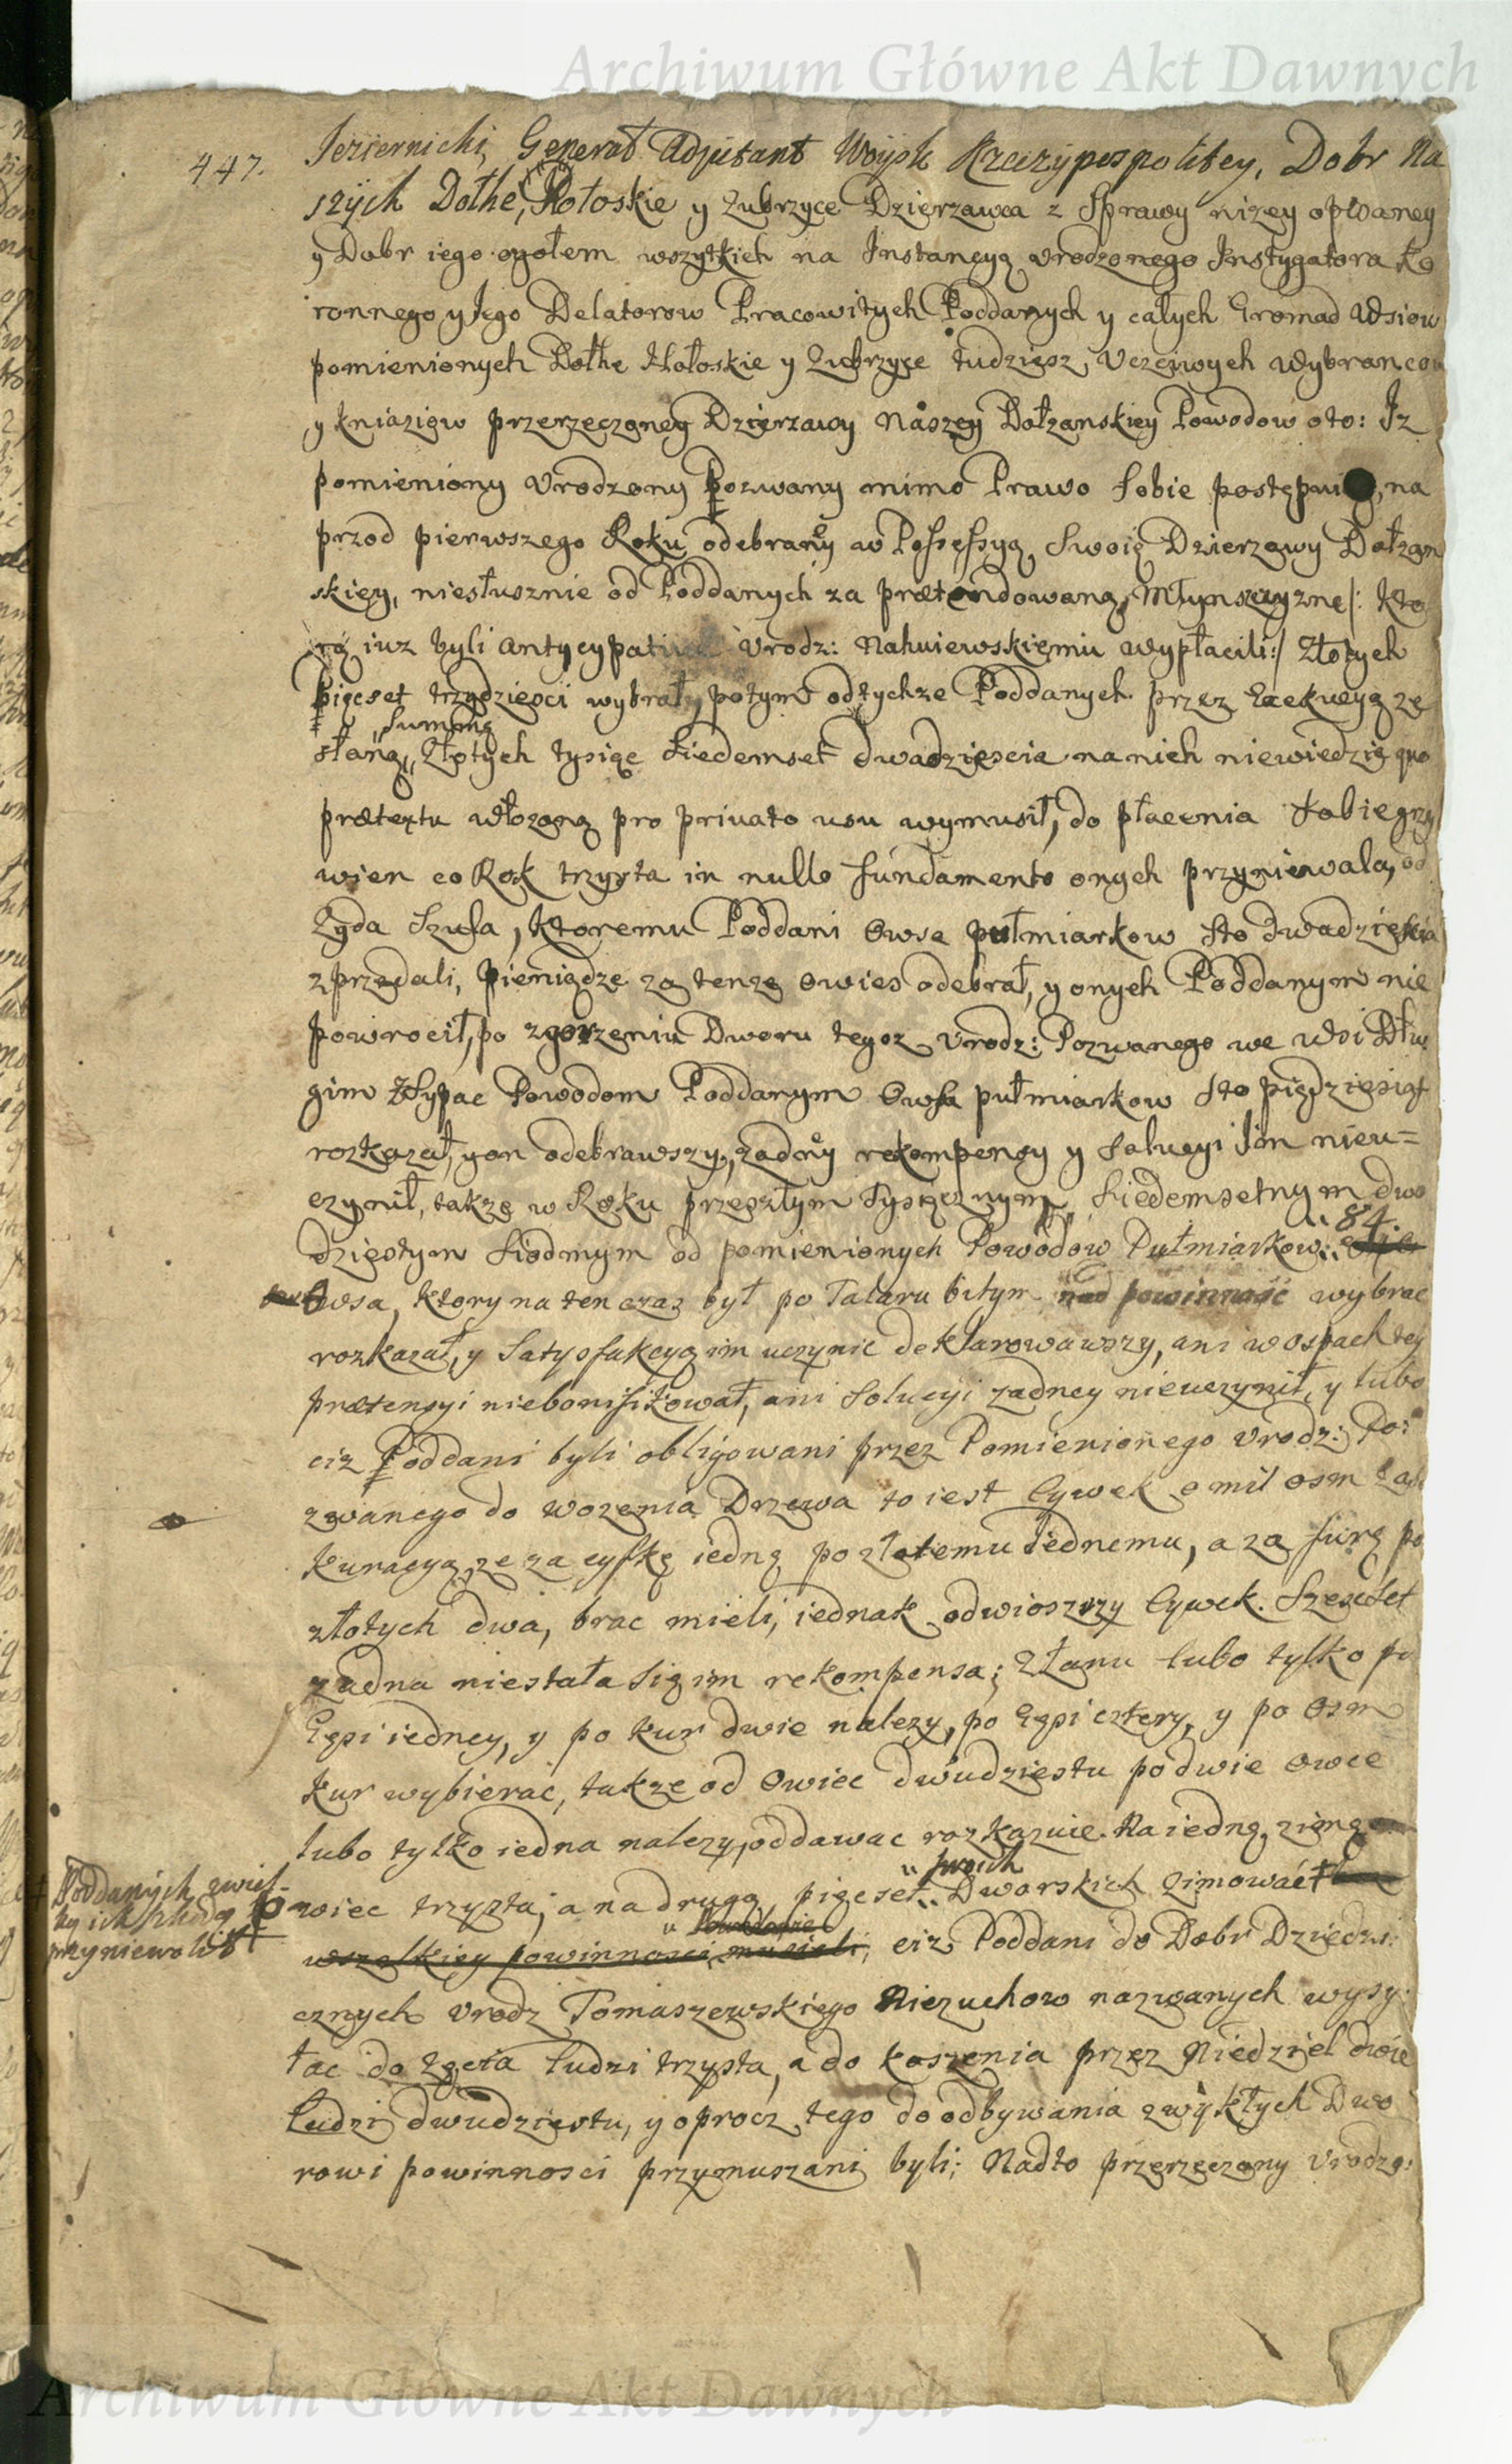 Archiwum Główne Akt Dawnych
447.
Jeziernicki, Generał Adjutant Woysk Rzeczypospolitey, Dobr Na
szych Dołhe, Hołoskie y Zubrzyce Dzierzawca z Sprawy nizey opisaney
y Dobr iego ogołem wszytkich na Instancyą Vrodzonego Instygatora Ko
ronnego y Jego Delatorow Pracowitych Poddanych y całych Gromad Wsiow
pomienionych Dołhe Hołoskie y Zubrzyce tudziesz Vczciwych Wybrancow
y Kniaziow przerzeczoney Dzierzawy Naszey Dołzanskiey Powodow oto: Iz
pomieniony Vrodzony Pozwany mimo Prawo sobie postępuiąc, na
przod pierwszego Roku odebraney w Possessyą swoię Dzierzawy Dołzan
skiey, niesłusznie od Poddanych za prætendowaną Młynszczyznę /: Kto
rą iuz byli antycypative Vrodz: Nahuiewskiemu wypłacili :/ Złotych
pięcset trzydziesci wybrał, potym od tychze Poddanych przez Exekucyą ze
summę
słaną Złotych tysiąc siedemset dwadziescia na nich niewiedzię quo
prætextu włozoną pro privato usu wymusił, do płacenia sobie grzy
wien co Rok trzysta in nullo fundamento onych przyniewala, od
Zyda Szufa, ktoremu Poddani Owsa pułmiarkow sto dwadziescia
zprzedali, pieniądze za tenze owies odebrał, y onych Poddanym nie
powrocił, po zgorzeniu Dworu tegoz Vrodz: Pozwanego we Wsi Dłu
gim zsypac Powodom Poddanym Owsa pułmiarkow sto pięдziesiąt
rozkazał, y on odebrawszy, zadney rekompensy y Solucyi Im nieu=
czynił, takze w Roku przeszłym Tysiącznym Siedemsetnym dwu
84.
dziestym siodmym od pomienionych Powodow Pułmiarkow
Owsa, ktory na ten czas był po Talaru bitym nad powinność wybrac
rozkazał, y Satysfakcyą im uczynic deklarowawszy, ani w ospach tey
prætensyi niebonifikował, ani Solucyi zadney nieuczynił, y lubo
ciz Poddani byli obligowani przez Pomienionego Vrodz: Po:
zwanego do wozenia Drzewa to iest Cywek o mil osm
kuracyą, ze za cyfkę iedną po złotemu Iednemu, a za furę po
złotych dwa, brac mieli, iednak odwiozszy Cywek Szescset
zadna niestała się im rekompensa; Z Łanu lubo tylko po
Gęsi iedney, y po Kur dwie nalezy, po Gęsi cztery, y po Osm
Kur wybierac, takze od Owiec dwudziestu po dwie Owce
lubo tylko iedna nalezy, oddawac rozkazuie. Na iedną zimę
swoich
owiec trzysta, a na drugą pięcset Dworskich Zimować
Poddanych zwiel-
ką ich szkodą
przyniewolił
wszelkiey powinnosci musieli, ciz Poddani do Dobr Dziedzi:
cznych Vrodz Tomaszewskiego Niezuchow nazwanych wysy:
łac do zęcia ludzi trzysta, a do koszenia przez Niedziel dwie
ludzi dwudziestu, y oprocz tego do odbywania zwykłych Dwo
rowi powinnosci przymuszani byli; Nadto przerzeczony Vrodzo:
Archiwum Główne Akt Dawnych